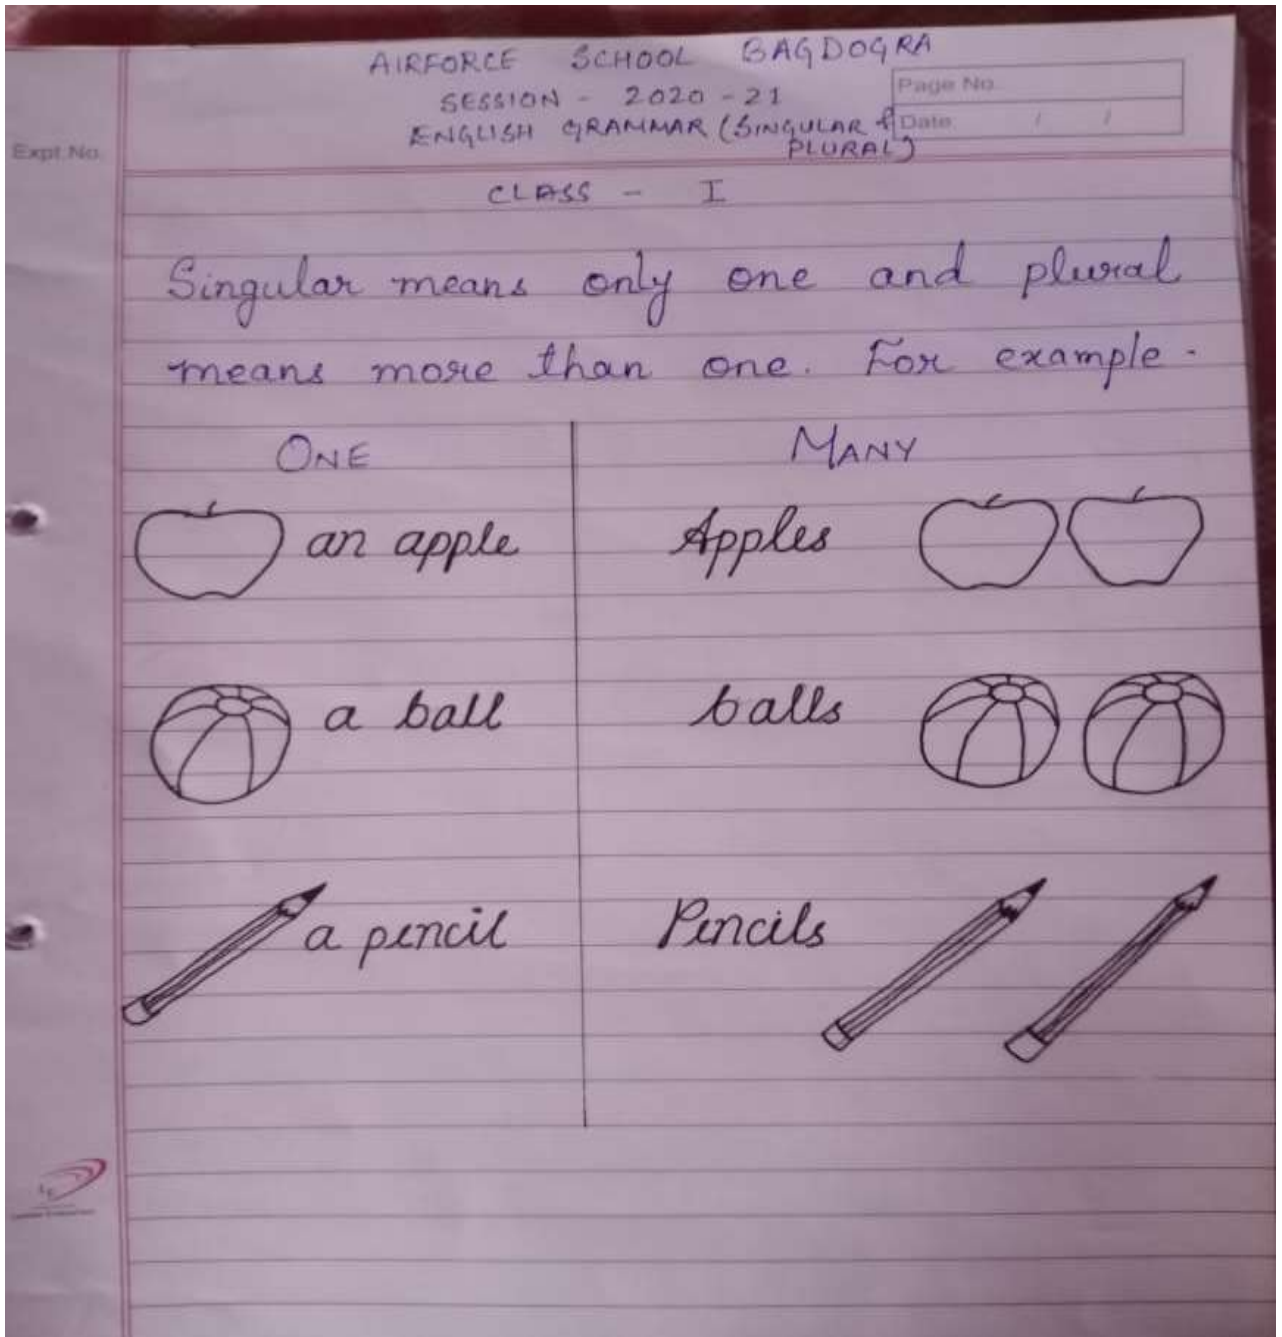 AIRFORCE SCHOOL BAGDOGRA
SESSION - 2020 - 21
Page No.
ENGLISH GRAMMAR (SINGULAR &
PLURAL)
Date / /
Expt.No.
CLASS - I
Singular means only one and plural
means more than one. For example -
ONE MANY
an apple Apples
a ball balls
a pencil Pencils